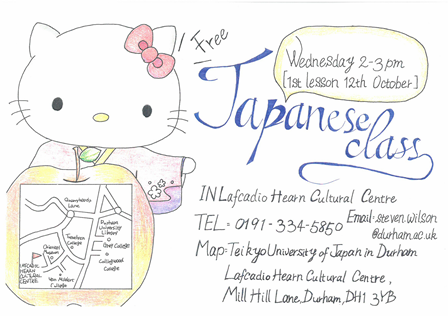 Free
Wednesday 2-3pm
[1st lesson 12th October]
Japanese
class
IN Lafcadio Hearn Cultural Centre
TEL= 0191-334-5850
Email: steven.wilson
@durham.ac.uk
Map: Teikyo University of Japan in Durham
Lafcadio Hearn Cultural Centre,
Mill Hill Lane, Durham, DH1 3YB
Lane
Durham
University
Library
Trevelyan
College
Grey College
Collingwood
College
LAFCADIO
HEARN
CULTURAL
CENTRE
Van Mildert
College